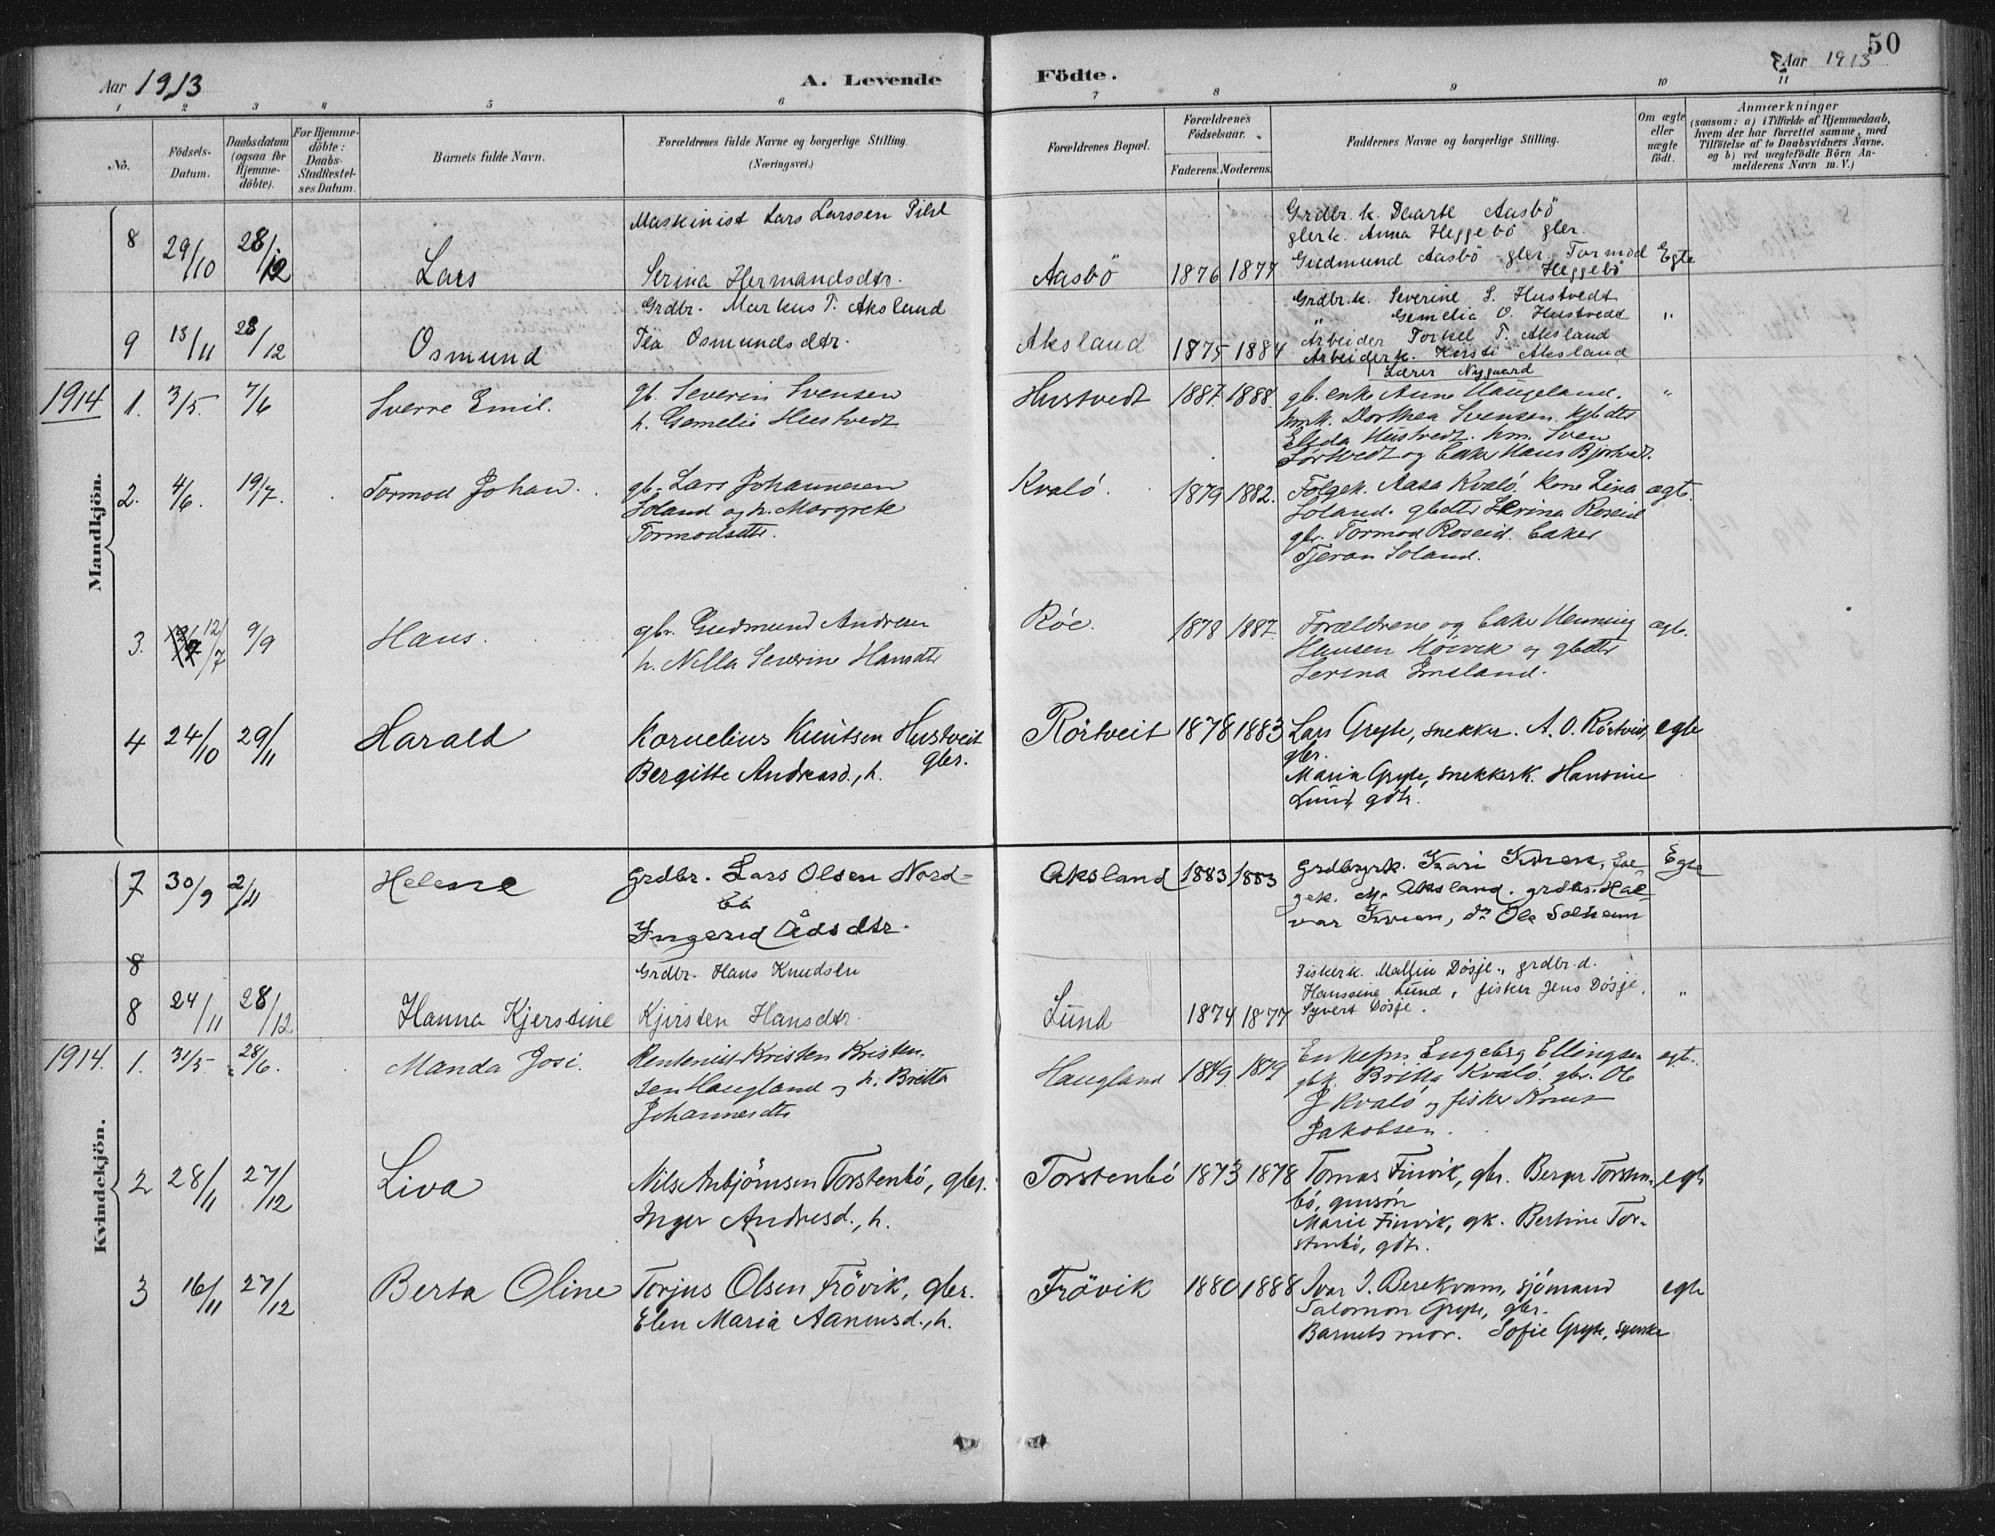 50
Aar 1913
A. Levende
Födte.
Aar 1913
1 2 3 4 5 6 7 8 9 10 11
Nô.
Födsels-
Datum.
Daabsdatum
(ogsaa for
Hjemme-
döbte).
For Hjemme-
döbte:
Daabs-
Stadfæstel-
ses Datum.
Barnets fulde Navn.
Forældrenes fulde Navne og borgerlige Stilling.
(Næringsvei.)
Forældrenes Bopæl.
Forældrenes
Födselsaar.
Faderens. Moderens.
Faddernes Navne og borgerlige Stilling.
Om ægte
eller
uægte
födt.
Anmærkninger
(saasom: a) i Tilfælde af Hjemmedaab,
hvem der har forrettet samme, med
Tilföielse af to Daabsvidners Navne.
og b) ved uægtefödte Börn An-
melderens Navn m. V.)
Mandkjön.
8 29/10 28/12 Lars
Maskinist Lars Larssen
Serina Hermandsdtr.
Aasbö 1876 1877
Grdbr.k. Dorte Aasbö
glerk. Anna Heggebö gler.
Gudmund Aasbö gler Tormod
Heggebö
Egte
9 13/11 28/12 Osmund
Grdbr. Markus T. Aksland
Osmundsdtr.
Aksland 1875 1884
Grdbr.k. Severine S. Hustvedt
" Gemelia O. Hustvedt
Arbeider Torkel T. Aksland
Arbeider k. Kirsti Aksland
Lærer Nygaard
"
1914 1. 3/5. 7/6 Sverre Emil.
gb. Severin Svensen
h. Gemelie Hustvedt
Hustvedt 1887. 1888.
gb. enke Anne Haugeland.
hmk. Dorthea Svensen gbdtr
Elida Hustvedt. hm. Sven
Sörtvedt og Hans Björtvedt.
"
2. 4/6. 19/7. Tormod Johan.
gb. Lars Johannesen
Soland og h. Margrete
Tormodsdtr.
Kvalö. 1879 1882.
Folgek. Aasa Kvalö. Kone Lina
Soland. gbdtr Serina Roseid
gbr. Tormod Roseid.
Tjeran Soland.
ægt.
3. 12/7 9/9 Hans.
gbr. Gudmund Andreas
h. Nilla Severine Hansdtr
Röe. 1878 1887.
Forældrene og Henning
Hansen og gbdtr
Serina Emsland.
ægt.
4 24/10 29/11 Harald
Kornelius Knutsen Hustveit
gbr.
Bergitte Andreasd., h.
Rörtveit 1878 1883
Lars Gryte, snekker. A. O. Rörtveit,
gbr.
Maria Gryte, snekkerk. Hansine
Lund, gdtr.
egte
Kvindekjön.
7 30/9 2/11 Helene
Grdbr. Lars Olsen Nord-
bö
Ingerid Ådsdtr.
Aksland 1883 1883
Grdbrgrk. Kari Kvien, föl-
gek. M. Aksland. grdbr. Hal-
var Kvien, do Ole Solheim
Egte
8
8 24/11 28/12 Hanna Kjerstine
Grdbr. Hans Knudsen
Kjirsten Hansdtr.
Lund 1874 1877
Fiskerk. Mallin Dösje., grdbr.d.
Hanssine Lund, fisker Jens Dösje,
Syvert Dösje.
"
1914. 1. 31/5 28/6. Manda Josi.
Kristen Kristen-
sen Haugland og h. Britta
Johannesdtr
Haugland 1849 1879
Enkefru Engebrg Ellingsen
gbk. Britta Kvalö. gbr. Ole
J Kvalö og fisker Knut
Jakobsen.
egt.
2 28/11 27/12 Liva
Nils Anbjörnsen Torstenbö, gbr.
Inger Andreasd., h.
Torstenbö 1873 1878
Tomas Finvik, gbr. Berger Torsten-
bö, gmsön
Marie Finvik, gk. Bertine Tor-
stenbö, gdtr.
egte
3 16/11 27/12 Berta Oline
Torjus Olsen Frövik, gbr.
Elen Maria Aanensd., h.
Frövik 1880 1888
Ivar I. Berekvam, sjömand
Salomon Gryte, gbr.
Barnets mor. Sofie Gryte, syerske
egte